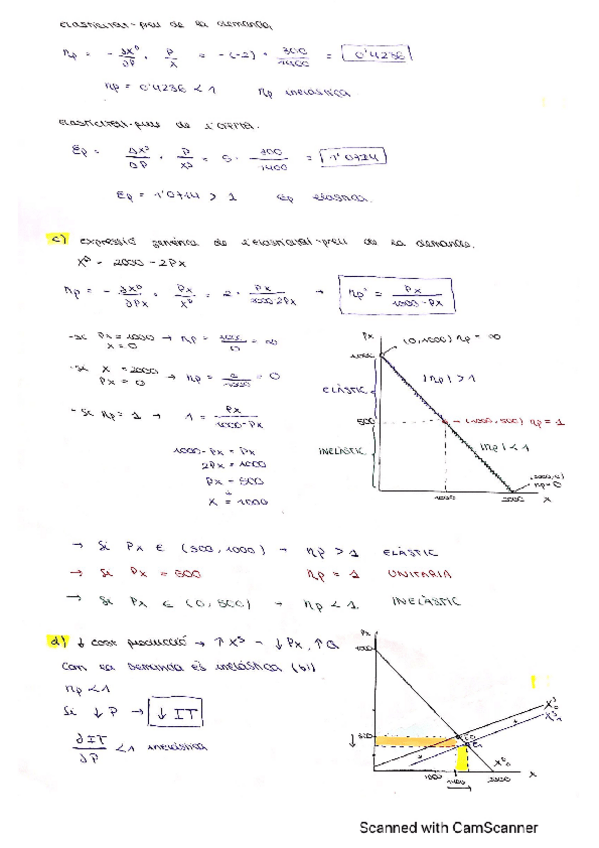 elasticitat-preu de la demanda
np = - ∂X^D/∂P · P/X = -(-2) · 300/1400 = 0'4286
np = 0'4286 < 1 np inelàstica
elasticitat-preu de l'oferta.
Ep = ΔX^S/ΔP · P/X^S = 5 · 300/1400 = 1'0714
Ep = 1'0714 > 1 Ep elàstica.
c) expressió genèrica de l'elasticitat-preu de la demanda.
X^D = 2000 - 2Px
np = - ∂X^D/∂Px · Px/X^D = 2 · Px/2000-2Px → np = Px/1000-Px
- si Px = 1000 X = 0 → np = 1000/0 = ∞
- si X = 2000 Px = 0 → np = 0/1000 = 0
- Si np = 1 → 1 = Px/1000-Px
1000 - Px = Px
2Px = 1000
Px = 500
X = 1000
Px
(0,1000) np = ∞
1000
|np| > 1
ELÀSTIC
500
(1000,500) np = 1
INELÀSTIC
|np| < 1
(2000,0) np = 0
1000 2000 X
→ Si Px ∈ (500, 1000) → np > 1 ELÀSTIC
→ Si Px = 500 np = 1 UNITARIA
→ Si Px ∈ (0, 500) → np < 1 INELÀSTIC
d) ↓ cost producció → ↑ X^S → ↓ Px, ↑ Q
Com la demanda és inelàstica (b)
np < 1
Si ↓ P → ↓ IT
∂IT/∂P < 1 inelàstica
Px
1000
300
X^S_0
X^S_1
E0
E1
X^D_0
1000 1400 2000 X
Scanned with CamScanner